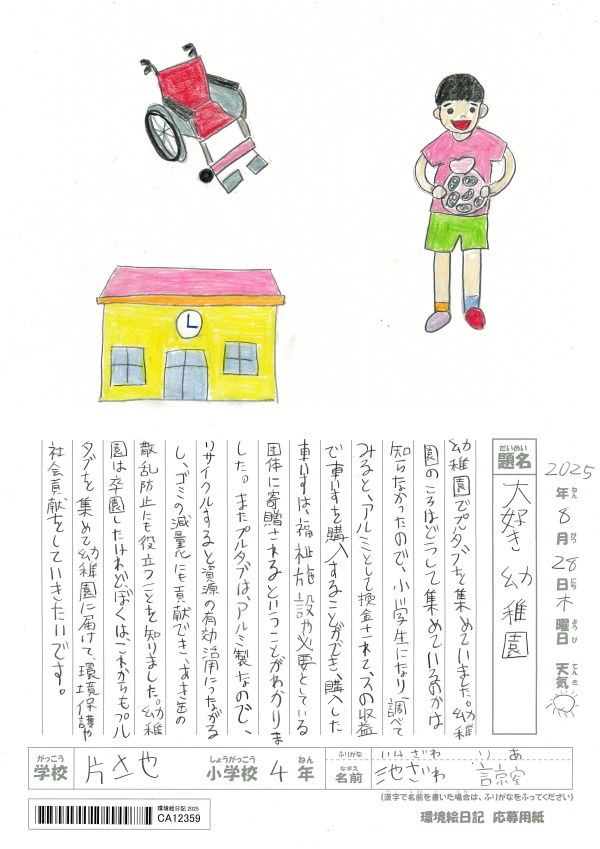 2025年8月28日木曜日 天気
ねん がつ にち ようび てんき
だいめい
題名 大好き幼稚園
幼稚園でプルタブを集めていました。幼稚
園のころはどうして集めているのかは
知らなかったので、小学生になり、調べて
みると、アルミとして換金されて、その収益
で車いすを購入することができ、購入した
車いすは、福祉施設や必要としている
団体に寄贈されるということがわかりま
した。またプルタブは、アルミ製なので、
リサイクルすると資源の有効活用につながる
し、ゴミの減量化にも貢献でき、あき缶の
散乱防止にも役立つことを知りました。幼稚
園は卒園したけれどぼくは、これからもプル
タブを集めて幼稚園に届けて、環境保護や
社会貢献をしていきたいです。
がっこう しょうがっこう ねん
学校 片山 小学校 4年
ふりがな いけざわ りあ
なまえ
名前 池ざわ
(漢字で名前を書いた場合は、ふりがなをふってください)
環境絵日記2025
CA12359
環境絵日記 応募用紙